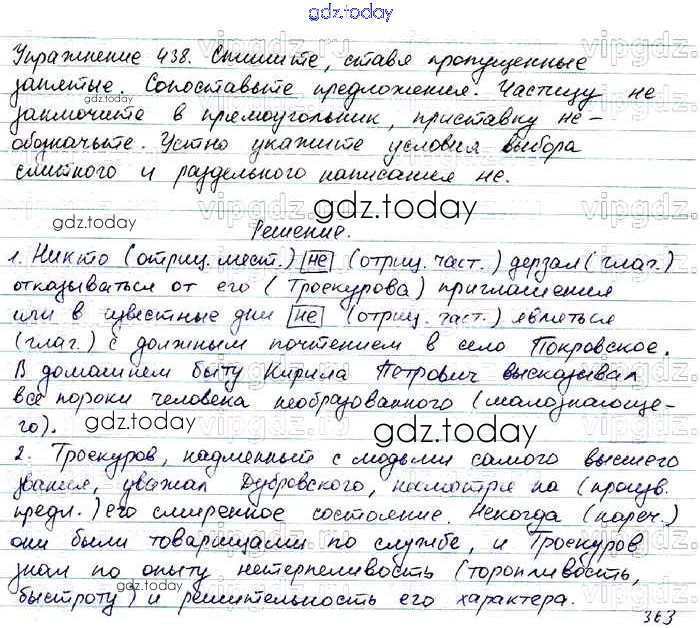 gdz.today
Упражнение 438. Спишите, ставя пропущенные
запятые. Сопоставьте предложения. Частицу не
gdz.today
заключите в прямоугольник, приставку не-
обозначьте. Устно укажите условия выбора
слитного и раздельного написания не.
gdz.today
gdz.today
Решение.
1. Никто (отриц. мест.) не (отриц. част.) дерзал (глаг.)
отказываться от его (Троекурова) приглашения
или в известные дни не (отриц. част.) являться
(глаг.) с должным почтением в село Покровское.
В домашнем быту Кирила Петрович высказывал
все пороки человека необразованного (малознающе-
го).
gdz.today
gdz.today
2. Троекуров, надменный с людьми самого высшего
звания, уважал Дубровского, несмотря на (произв.
предл.) его смиренное состояние. Некогда (нареч.)
они были товарищами по службе, и Троекуров
знал по опыту нетерпеливость (торопливость,
gdz.today
быстроту) и решительность его характера.
363